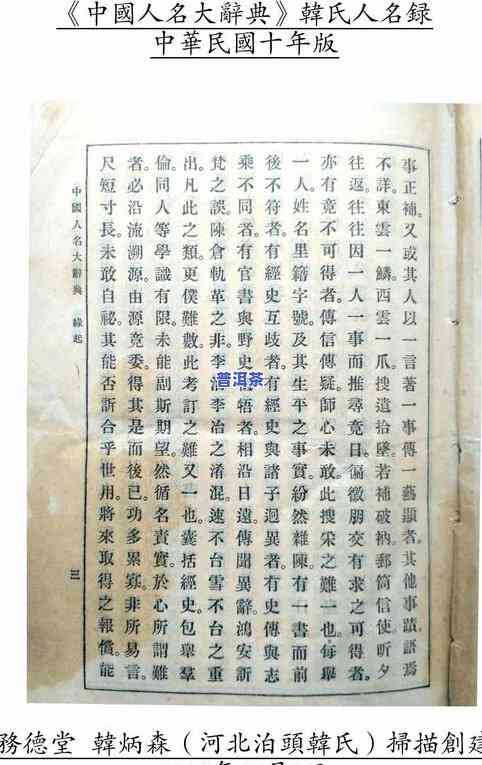 《中國人名大辭典》韓氏人名録
中華民國十年版
事正補。又或其人以一言著一事傳一藝顯者。其他事蹟。語焉
不詳。東雲一鱗。西雲一爪。搜遺拾墜。若補破衲。郵筒信使。昕夕
往返。往往因一人一事而推尋竟日。偏徵朋交。有求之可得者。
亦有竟不可得者。傳信傳疑。師心未敢。此搜采之難一也。每舉
一人姓名里籍字號及其生平之事實。紛然雜陳。有一書而前
後不符者。有經史互歧者。有經史與諸子迥異者。有史傳與志
乘不同者。有官書與野史牴牾者。相沿日遠。傳聞異辭。鴻安訢
梵之誤。陳倉軌革之非。李李冶之淆混。速不台雪不台之重
出。凡此之類。更僕難數。此考訂之難又一也。囊括經史。包舉羣
倫。同人等學識有限。未能副斯期望。然循名責實。於心所謂難
者。必沿流溯源。由源竟委。得其是而後已。功多累寡。非所易言。
尺短寸長。未敢自祕。其能否訢合乎世用。將來取得之報償。能
中國人名大辭典 緣起 三
普洱茶
務德堂 韓炳森（河北泊頭韓氏）掃描創建